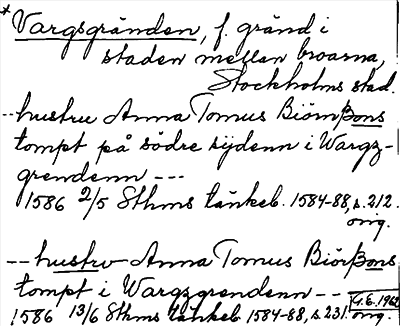 *Vargsgränden, f. gränd i
staden mellan broarna,
Stockholms stad.
--hustru Anna Tomus Biörnßons
tompt på södre sijdenn i Wargz-
grendenn ---
1586 2/5 Sthms tänkeb. 1584-88, s. 212.
orig.
--hustrv Anna Tomus Biörßons
tompt i Wargzgrendenn --
1586 13/6 Sthms tänkeb. 1584-88, s. 231. orig.
4.6.1962